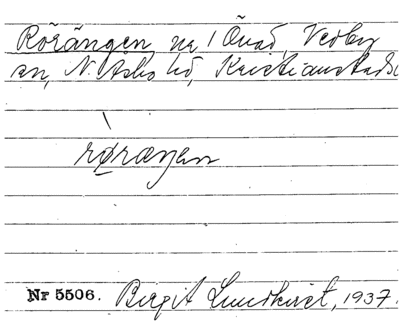 Rörängen, na i Önad, Vedby
sn, N. Åsbo hd, Kristianstads
røraŋen
Nr 5506. Birgit Lundkvist, 1937.